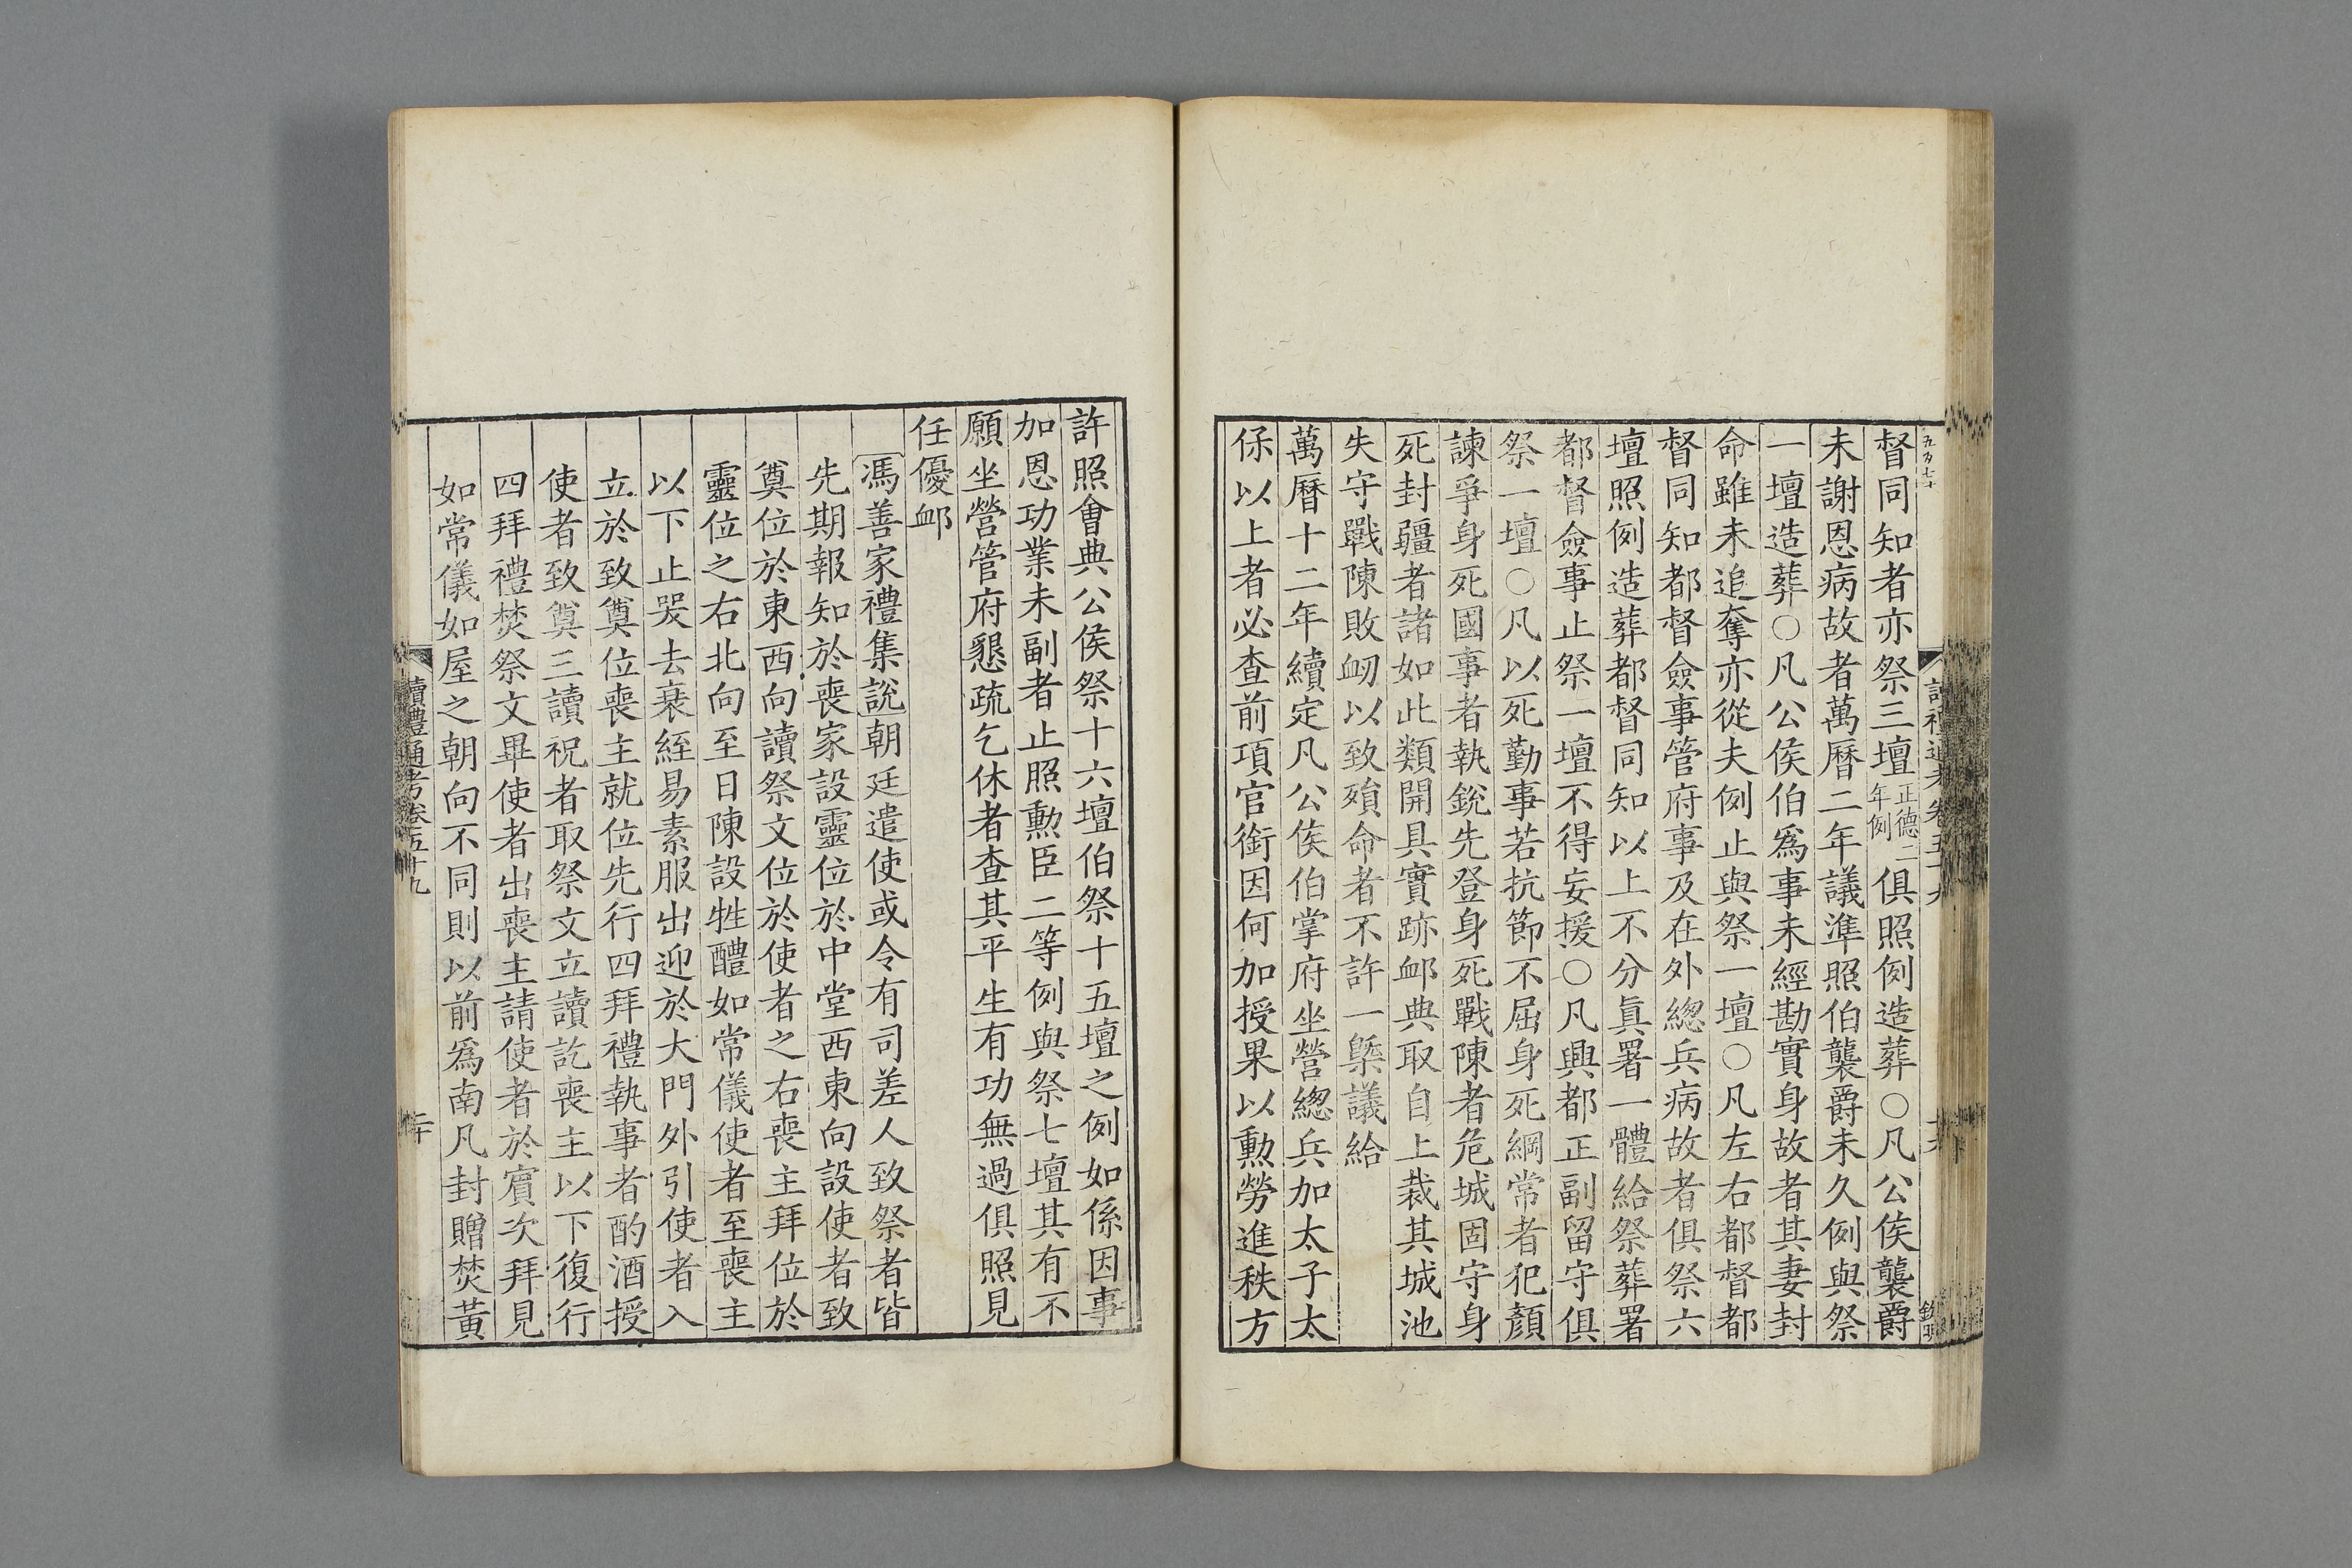 督同知者亦祭三壇正德二年例俱照例造葬○凡公侯襲爵
未謝恩病故者萬曆二年議準照伯襲爵未久例與祭
一壇造葬○凡公侯伯爲事未經勘實身故者其妻封
命雖未追奪亦從夫例止與祭一壇○凡左右都督都
督同知都督僉事管府事及在外總兵病故者俱祭六
壇照例造葬都督同知以上不分眞署一體給祭葬署
都督僉事止祭一壇不得妄援○凡興都正副留守俱
祭一壇○凡以死勤事若抗節不屈身死綱常者犯顏
諫爭身死國事者執銳先登身死戰陳者危城固守身
死封疆者諸如此類開具實跡卹典取自上裁其城池
失守戰陳敗衂以致殞命者不許一槩議給
萬曆十二年續定凡公侯伯掌府坐營總兵加太子太
保以上者必查前項官銜因何加授果以勳勞進秩方
許照會典公侯祭十六壇伯祭十五壇之例如係因事
加恩功業未副者止照勳臣二等例與祭七壇其有不
願坐營管府懇疏乞休者查其平生有功無過俱照見
任優卹
馮善家禮集說朝廷遣使或令有司差人致祭者皆
先期報知於喪家設靈位於中堂西東向設使者致
奠位於東西向讀祭文位於使者之右喪主拜位於
靈位之右北向至日陳設牲醴如常儀使者至喪主
以下止哭去衰絰易素服出迎於大門外引使者入
立於致奠位喪主就位先行四拜禮執事者酌酒授
使者致奠三讀祝者取祭文立讀訖喪主以下復行
四拜禮焚祭文畢使者出喪主請使者於賓次拜見
如常儀如屋之朝向不同則以前爲南凡封贈焚黃
讀禮通考卷五十九
二十